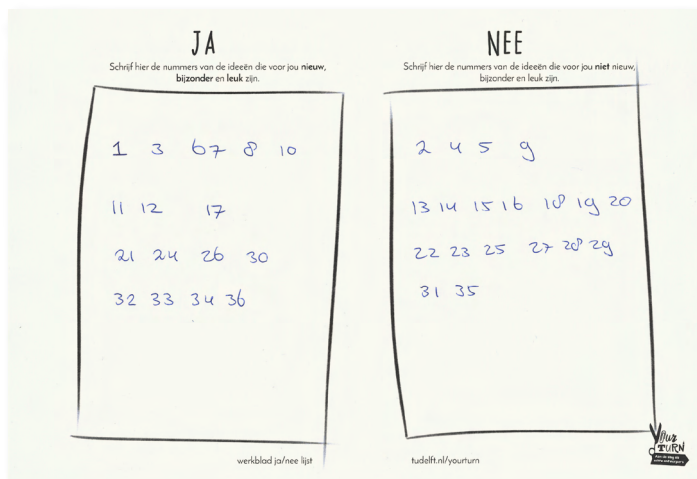 JA
Schrijf hier de nummers van de ideeën die voor jou nieuw,
bijzonder en leuk zijn.
1 3 6 7 8 10
11 12 17
21 24 26 30
32 33 34 36
werkblad ja/nee lijst
NEE
Schrijf hier de nummers van de ideeën die voor jou niet nieuw,
bijzonder en leuk zijn.
2 4 5 9
13 14 15 16 18 19 20
22 23 25 27 28 29
31 35
tudelft.nl/yourturn
Your
TURN